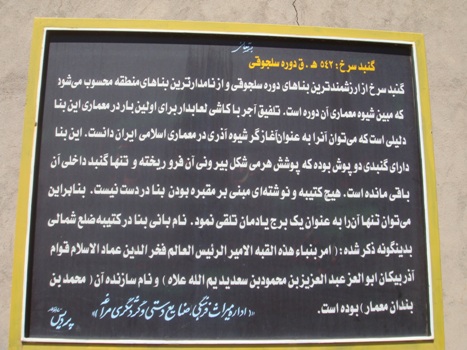 بنام خدا
گنبد سرخ : ٥٤٢ هـ . ق دوره سلجوقی
گنبد سرخ از ارزشمندترین بناهای دوره سلجوقی و از نامدارترین بناهای منطقه محسوب می‌شود
که مبین شیوه معماری آن دوره است. تلفیق آجر با کاشی لعابدار برای اولین بار در معماری این بنا
دلیلی است که می‌توان آنرا به عنوان آغاز گر شیوه آذری در معماری اسلامی ایران دانست. این بنا
دارای گنبدی دو پوش بوده که پوشش هرمی شکل بیرونی آن فرو ریخته و تنها گنبد داخلی آن
باقی مانده است. هیچ کتیبه و نوشته‌ای مبنی بر مقبره بودن بنا در دست نیست. بنابراین
می‌توان تنها آن‌را به عنوان یک برج یادمان تلقی نمود. نام بانی بنا در کتیبه ضلع شمالی
بدینگونه ذکر شده : ( امر بنباء هذه القبه الامیر الرئیس العالم فخر الدین عماد الاسلام قوام
آذربیکان ابو العز عبد العزیز بن محمود بن سعد یدیم الله علاه ) و نام سازنده آن ( محمد بن
بندان معمار ) بوده است.
«اداره میراث فرهنگی، صنایع دستی و گردشگری مراغه»